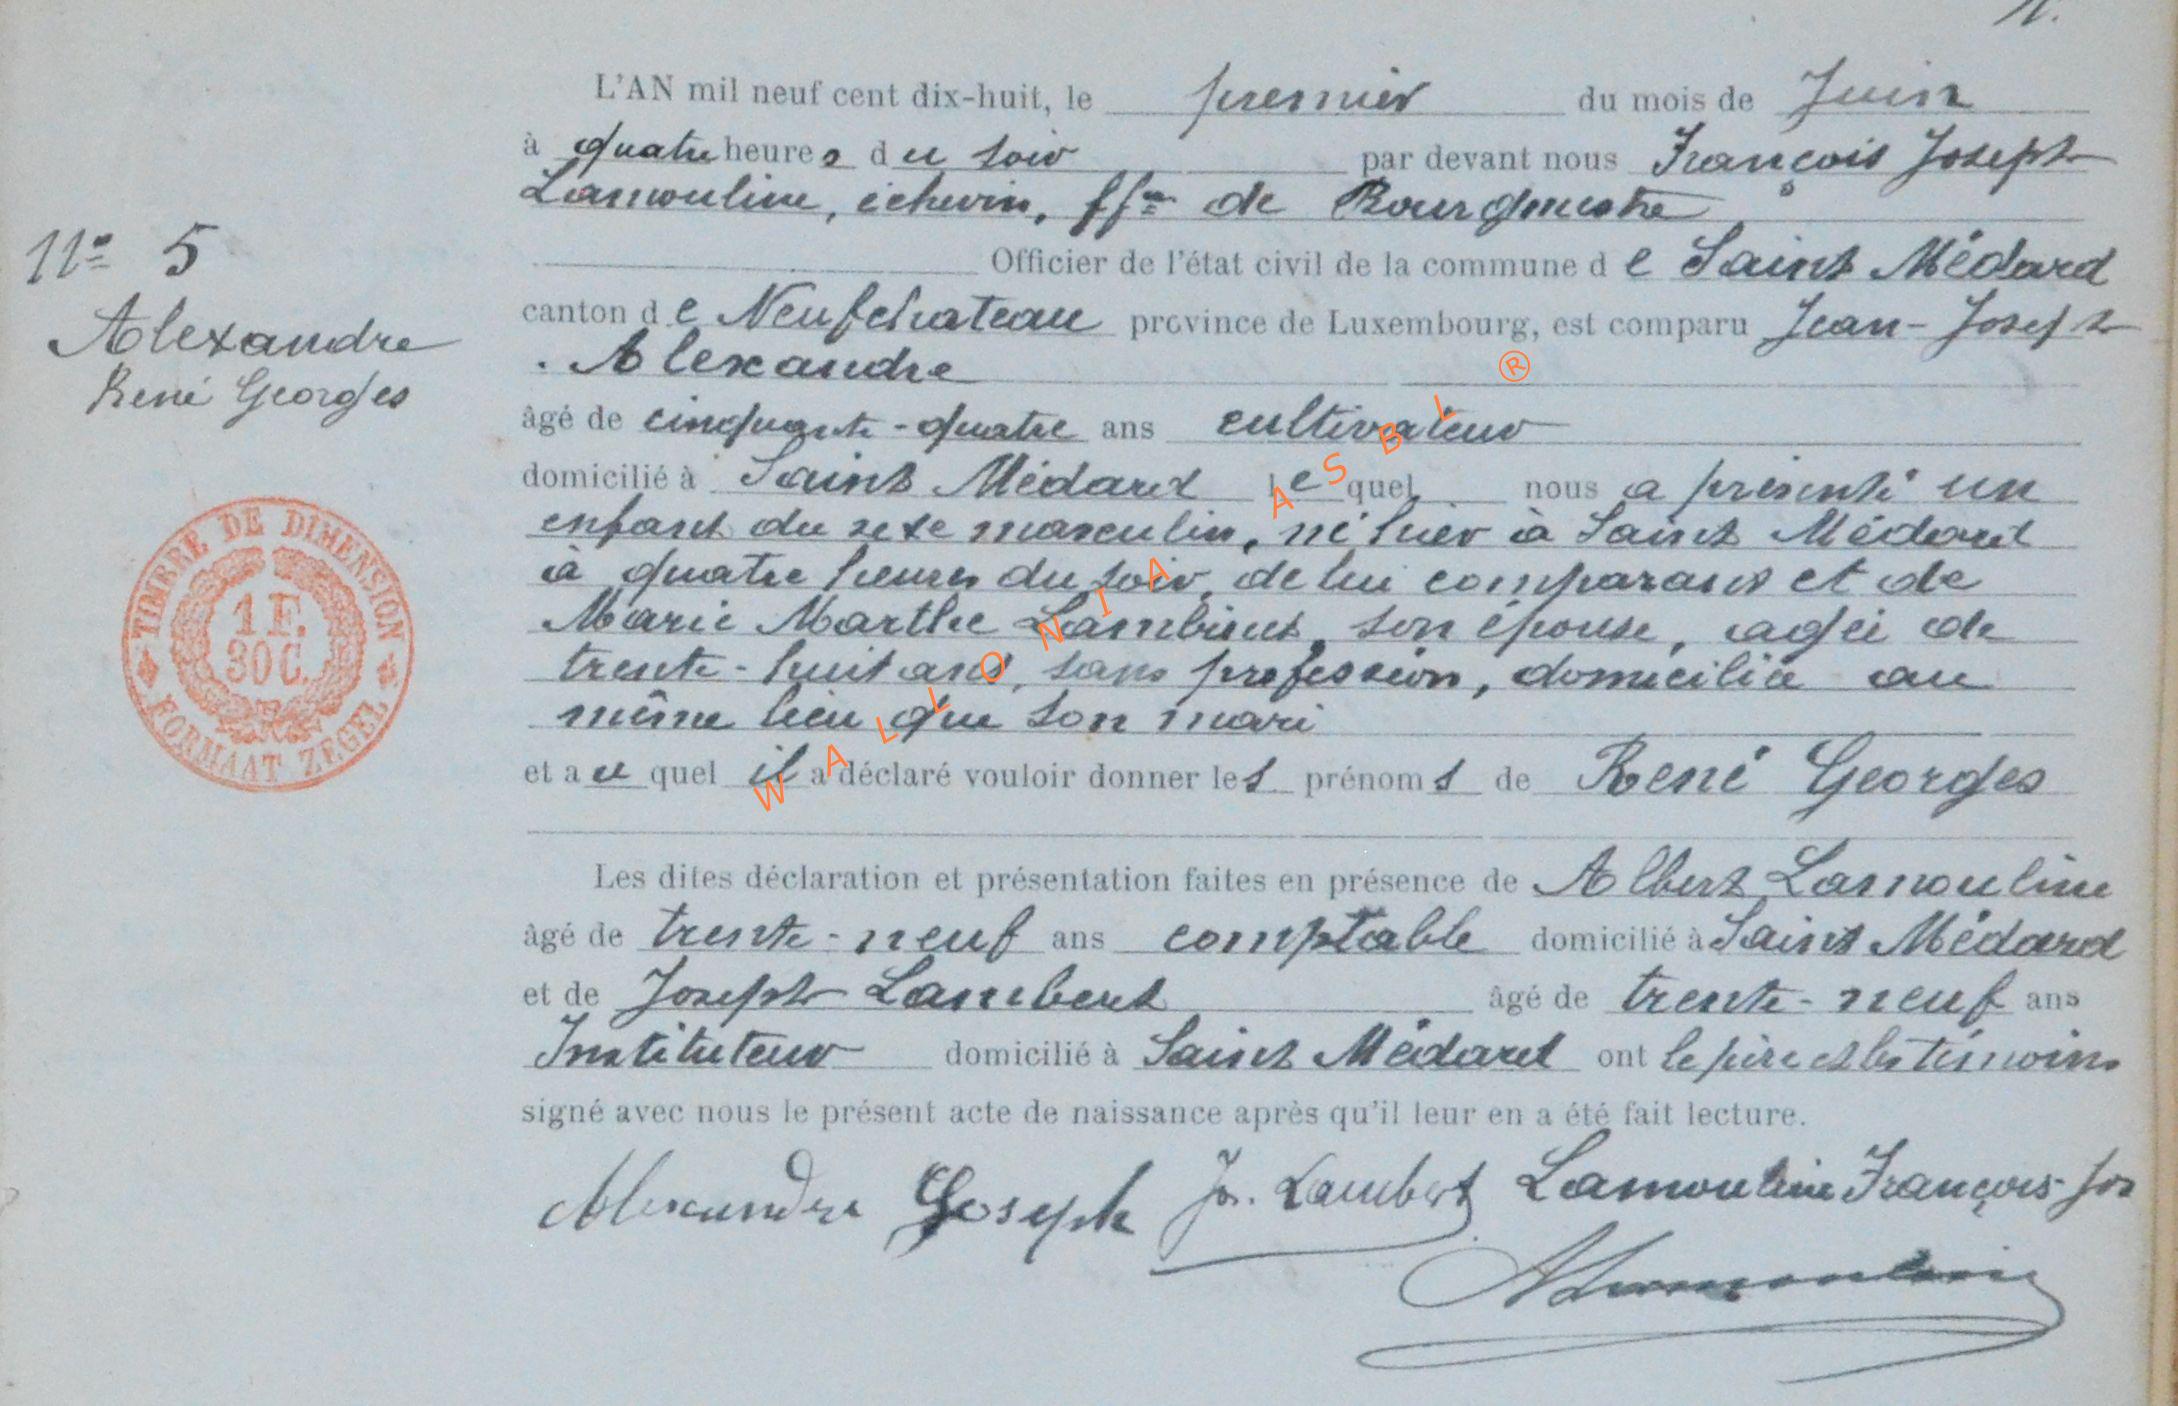 L'AN mil neuf cent dix-huit, le premier du mois de Juin
à quatre heures du soir par devant nous François Joseph
Lamouline, échevin, ffns de Bourgmestre
Officier de l'état civil de la commune de Saint Médard
N° 5
canton de Neufchateau province de Luxembourg, est comparu Jean-Joseph
Alexandre
René Georges
Alexandre
âgé de cinquante-quatre ans cultivateur
domicilié à Saint Médard lequel nous a présenté un
enfant du sexe masculin, né hier à Saint Médard
à quatre heures du soir, de lui comparant et de
Marie Marthe son épouse, agée de
trente-huit ans, sans profession, domiciliée au
même lieu que son mari
TIMBRE DE DIMENSION
1 F.
30 C.
FORMAAT ZEGEL
et auquel il a déclaré vouloir donner les prénoms de René Georges
Les dites déclaration et présentation faites en présence de Albert Lamouline
âgé de trente-neuf ans comptable domicilié à Saint Médard
et de Joseph Lambert âgé de trente-neuf ans
Instituteur domicilié à Saint Médard ont le père et les témoins
signé avec nous le présent acte de naissance après qu'il leur en a été fait lecture.
Alexandre Joseph Jos. Lambert Lamouline François-Jos
ALamouline
WALLONIA ASBL ®